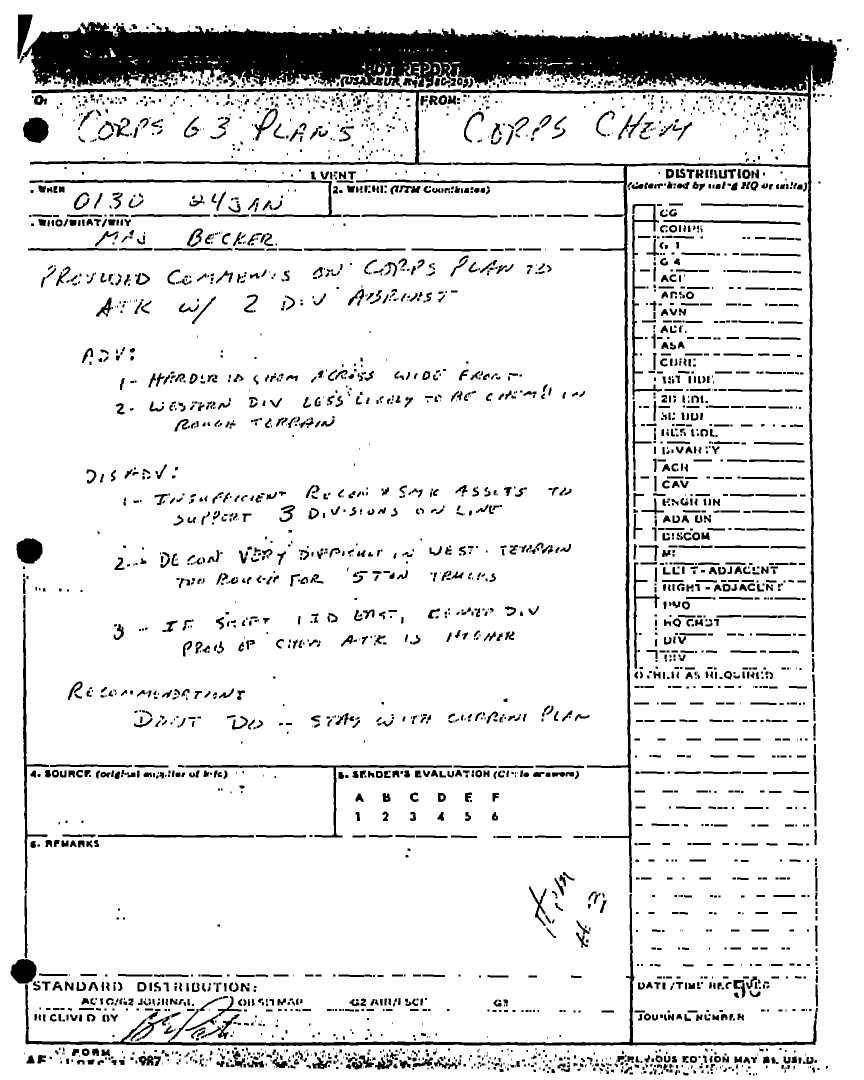 SPOT REPORT
TO:
FROM:
CORPS G3 PLANS
CORPS CHEM
EVENT
DISTRIBUTION
(determined by using HQ or units)
. WHEN
0130 24 JAN
2. WHERE (UTM Coordinates)
. WHO/WHAT/WHY
MAJ BECKER
PROVIDED COMMENTS ON CORPS PLAN TO
ATK W/ 2 DIV ABREAST
ADV:
1- HARDER TO CHEM ACROSS WIDE FRONT
2- WESTERN DIV LESS LIKELY TO BE CHEM'D IN
ROUGH TERRAIN
DISADV:
1- INSUFFICIENT RECON & SMK ASSETS TO
SUPPORT 3 DIVISIONS ON LINE
2- DECON VERY DIFFICULT IN WEST. TERRAIN
TOO ROUGH FOR 5 TON TRUCKS
3 - IF SHIFT 1 ID EAST,
DIV
PROB OF CHEM ATK IS HIGHER
RECOMMENDATION:
DON'T DO -- STAY WITH CURRENT PLAN
CG
CORPS
G 1
G 4
AVN
ASA
1ST BDE
2D BDE
3D BDE
RES BDE
DIVARTY
ACR
CAV
ENGR BN
ADA BN
DISCOM
MI
LEFT - ADJACENT
RIGHT - ADJACENT
PMO
HQ CMDT
DIV
DIV
OTHER AS REQUIRED
4. SOURCE (original supplier of info)
5. SENDER'S EVALUATION (Circle answers)
A B C D E F
1 2 3 4 5 6
6. REMARKS
STANDARD DISTRIBUTION:
G2 JOURNAL
OB SITMAP
G2 AIR/
RECEIVED BY
DATE/TIME RECEIVED
JOURNAL NUMBER
FORM
PREVIOUS EDITION MAY BE USED.